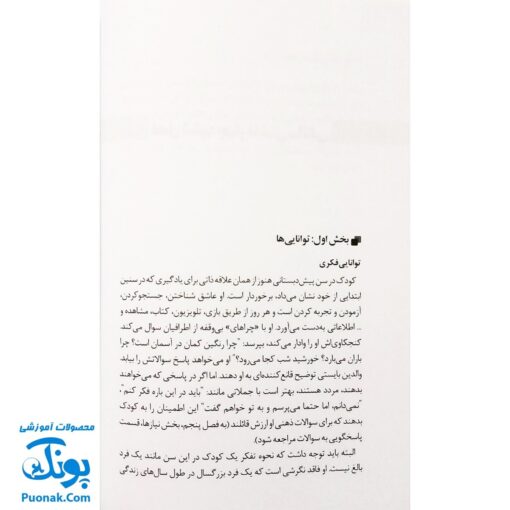 بخش اول: توانایی‌ها
توانایی فکری
کودک در سن پیش‌دبستانی هنوز از همان علاقه ذاتی برای یادگیری که در سنین
ابتدایی از خود نشان می‌داد، برخوردار است. او عاشق شناختن، جستجو کردن،
آزمودن و تجربه کردن است و هر روز از طریق بازی، تلویزیون، کتاب، مشاهده و
... اطلاعاتی به‌دست می‌آورد. او با «چراهای» بی‌وقفه از اطرافیان سوال می‌کند.
کنجکاوی‌اش او را وادار می‌کند، بپرسد: "چرا رنگین کمان در آسمان است؟ چرا
باران می‌بارد؟ خورشید شب کجا می‌رود؟" او می‌خواهد پاسخ سوالاتش را بیابد.
والدین بایستی توضیح قانع‌کننده‌ای به او دهند. اما اگر در پاسخی که می‌خواهند
بدهند، مردد هستند، بهتر است با جملاتی مانند: "باید در این باره فکر کنم"،
"نمی‌دانم، اما حتما می‌پرسم و به تو خواهم گفت" این اطمینان را به کودک
بدهند که برای سوالات ذهنی او ارزش قائلند (به فصل پنجم، بخش نیازها، قسمت
پاسخگویی به سوالات مراجعه شود).
البته باید توجه داشت که نحوه تفکر یک کودک در این سن مانند یک فرد
بالغ نیست. او فاقد نگرشی است که یک فرد بزرگسال در طول سال‌های زندگی
محصولات آموزشی
پونک
Puonak.Com